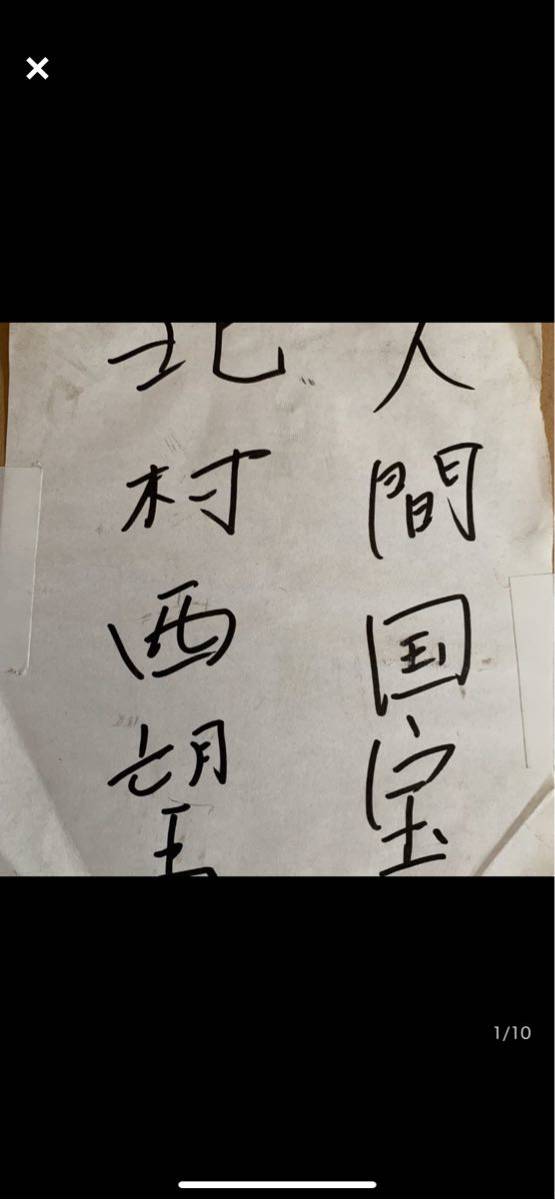 人間国宝
北村西望
1/10